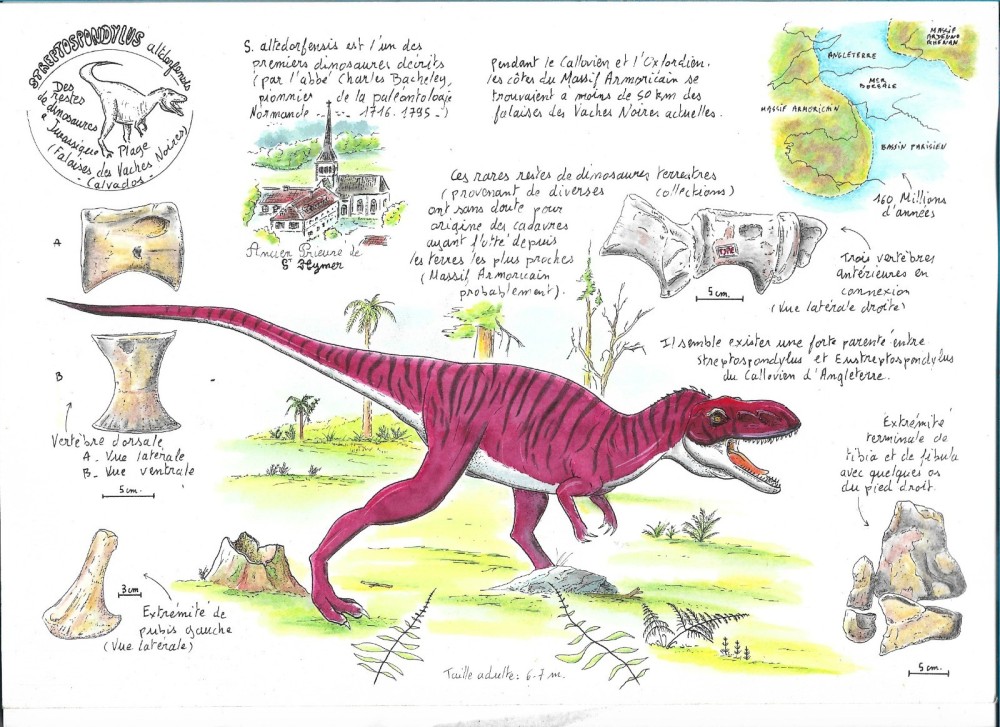 STREPTOSPONDYLUS altdorfensis
Des
restes
de dinosaures
à
Jurassique Plage
(Falaises des Vaches Noires)
- Calvados -
S. altdorfensis est l'un des
premiers dinosaures décrits
(par l'abbé Charles Bacheley,
pionnier de la paléontologie
Normande ---- 1716. 1795 -)
Ancien Prieuré de
St Hymer
pendant le Callovien et l'Oxfordien.
les côtes du Massif Armoricain se
trouvaient à moins de 50 km des
falaises des Vaches Noires actuelles.
MASSIF
ARDENNO
RHENAN
ANGLETERRE
MER
BOREALE
MASSIF ARMORICAIN
BASSIN PARISIEN
160 Millions
d'années
Ces rares restes de dinosaures terrestres
(provenant de diverses collections)
ont sans doute pour
origine des cadavres
ayant flotté depuis
les terres les plus proches
(Massif Armoricain
probablement).
5 cm.
Trois vertèbres
antérieures en
connexion
(Vue latérale droite)
Il semble exister une forte parenté entre
Streptospondylus et Eustreptospondylus
du Callovien d'Angleterre.
A
B
Vertèbre dorsale
A. Vue latérale
B. Vue ventrale
5 cm.
3 cm
Extrémité de
pubis gauche
(Vue latérale)
Extrémité
terminale de
tibia et de fibula
avec quelques os
du pied droit.
5 cm.
Taille adulte: 6-7 m.